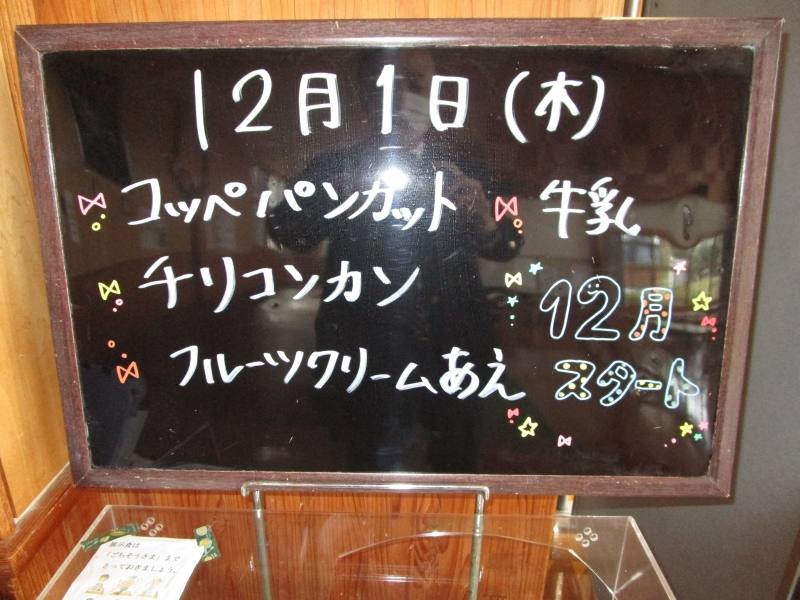 12月1日(木)
コッペパンカット 牛乳
チリコンカン
フルーツクリームあえ
12月
スタート
展示食は
「ごちそうさま」まで
とっておきましょう。